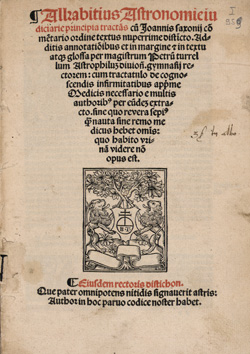 ¶Alkabitius Astronomie iu
diciarie principia tractās cū Joannis saxonij cō
mētario ordine textus nuperrime distīcto. Ad
ditis annotatiōibus et in margine ꝛ in textu
atqꝫ glosa per magistrum Petrū turrel
lum Astrophilū diuioñ. gymnasij re
ctorem: cum tractatulo de cognos
cendis infirmitatibus apprime
Medicis necessario e multis
authoribꝰ per eūdeꝫ extra
cto. sine quo reuera sepiꝰ
q̄ȝ nauta sine remo me
dicus hebet om̄is:
quo habito vri
nā videre nō
opus est.
¶Eiusdem rectoris distichon.
Que pater omnipotens nitidis signauerit astris:
Author in hoc paruo codice noster habet.